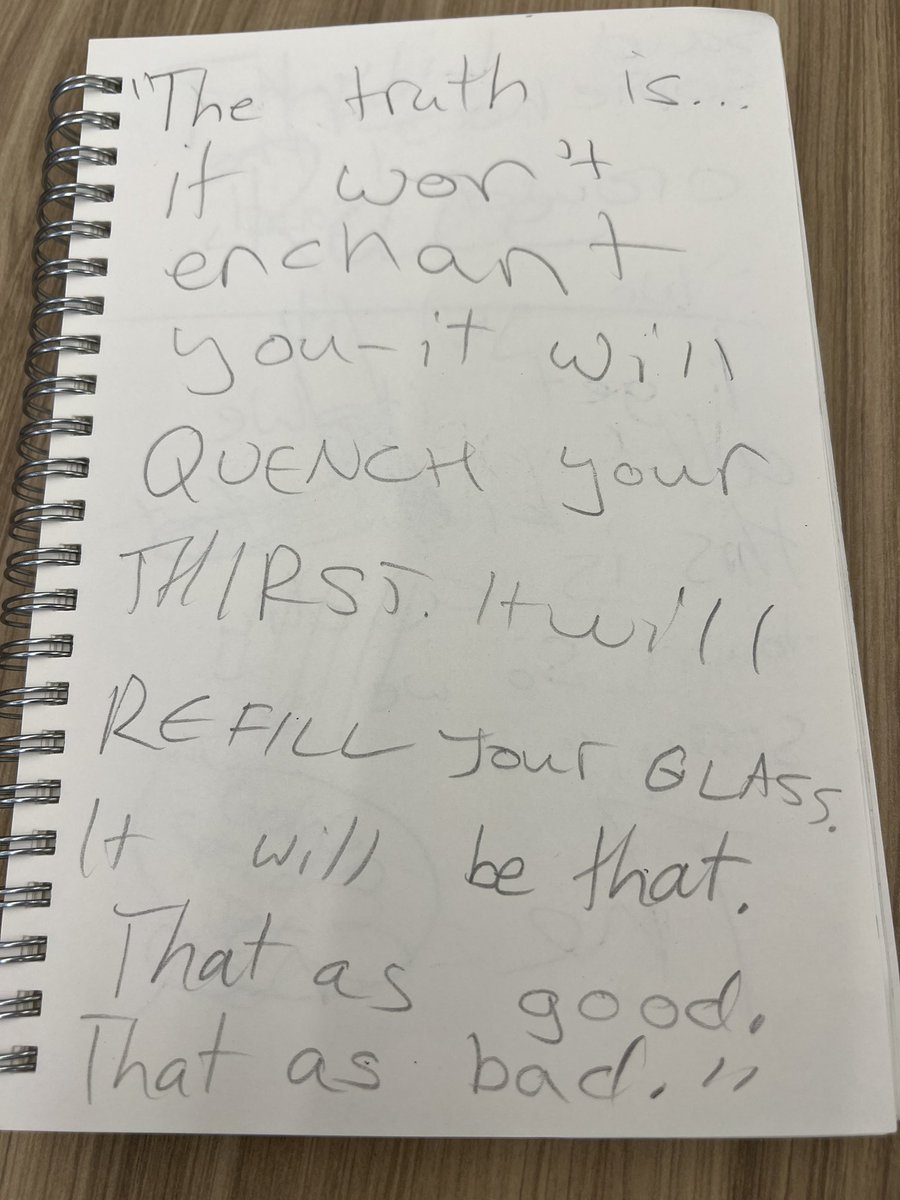 "The truth is...
it won't
enchant
you-it will
QUENCH your
THIRST. It will
REFILL your GLASS.
It will be that.
That as good.
That as bad."